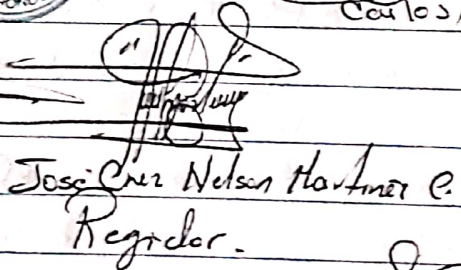 Carlos
José Cruz Nelson Martinez C.
Regidor.